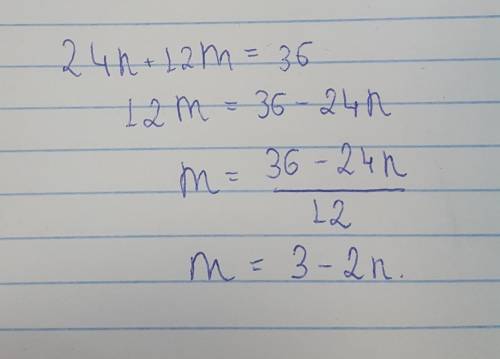 24n + 12m = 36
12m = 36 - 24n
m = \frac{36 - 24n}{12}
m = 3 - 2n.